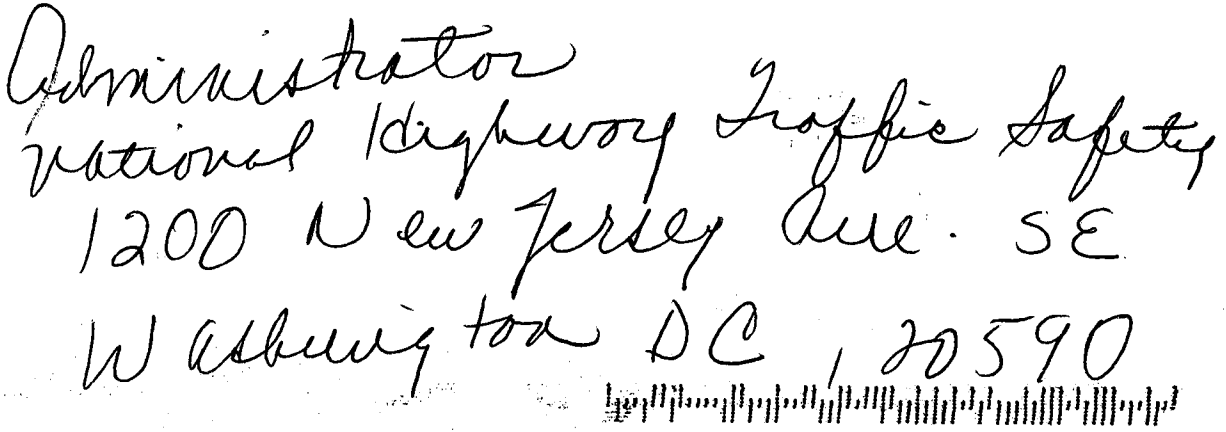 Administrator
National Highway Traffic Safety
1200 New Jersey Ave. SE
Washington DC, 20590